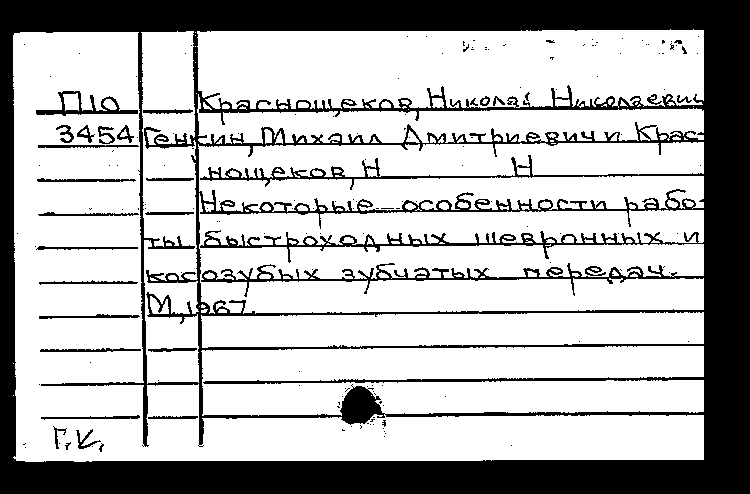 П10 Краснощеков, Николай Николаевич
3454 Генкин, Михаил Дмитриевич и Крас-
нощеков, Н Н
Некоторые особенности рабо-
ты быстроходных шевронных и
косозубых зубчатых передач.
М., 1967.
Г.К.